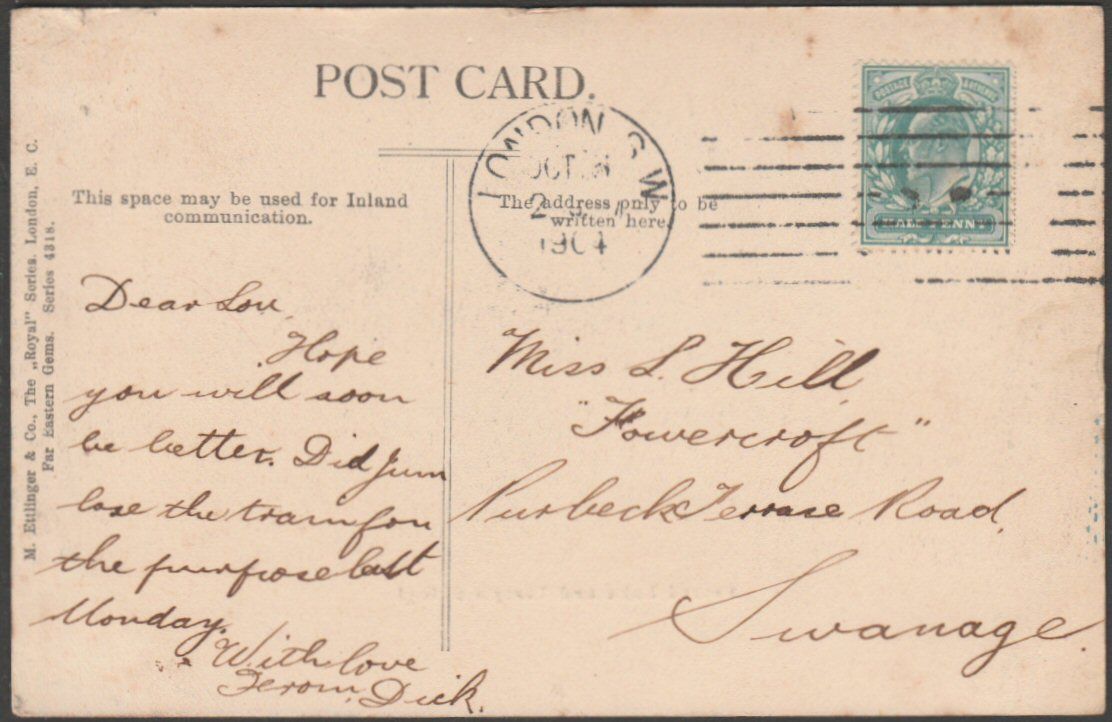 POST CARD.
This space may be used for Inland
communication.
The address only to be
written here.
LONDON. S.W
OCT
1904
POSTAGE & REVENUE
HALFPENNY
M. Ettlinger & Co., The „Royal" Series. London, E. C.
Far Eastern Gems. Series 4318.
Dear Lou,
Hope
you will soon
be better. Did Jum
lose the train for
the purpose last
Monday.
With love
From Dick.
Miss L. Hill,
"Towercroft"
Purbeck Terrace Road,
Swanage.